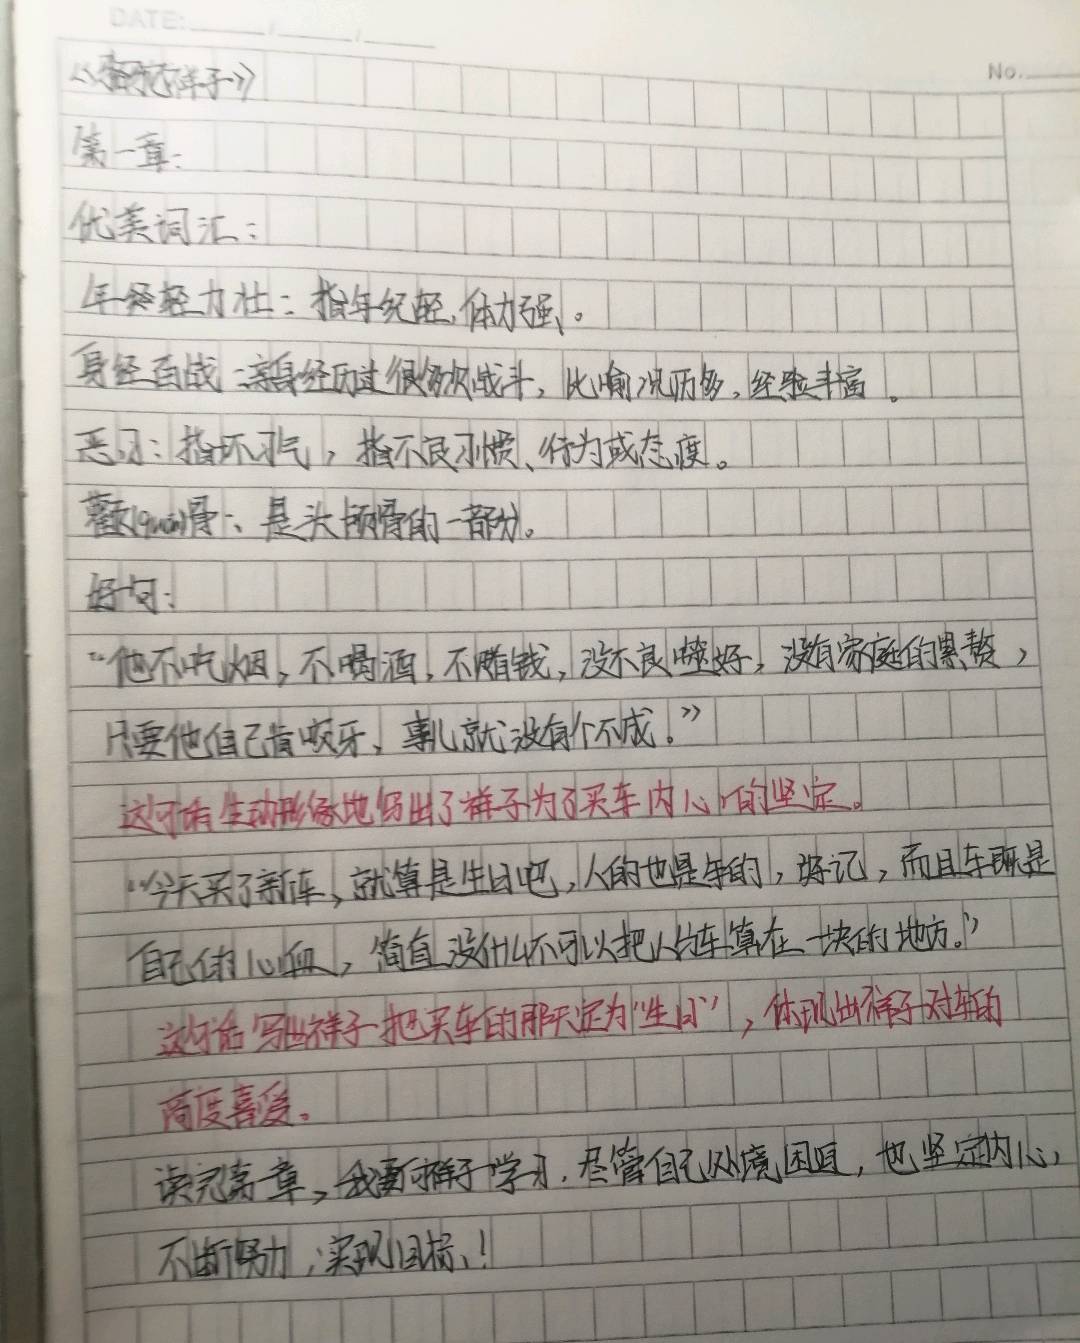 DATE: / /
No.
《骆驼祥子》
第一章:
优美词汇:
年轻力壮:指年纪轻,体力强。
身经百战:亲身经历过很多次战斗,比喻况历多,经验丰富。
恶习:指坏习气,指不良习惯、行为或态度。
颧(quán)骨:是头颅骨的一部分。
好句:
“他不吃烟,不喝酒,不赌钱,没不良嗜好,没有家庭的累赘,
只要他自己肯咬牙,事儿就没有个不成。”
这句话生动形象地写出了祥子为了买车内心的坚定。
“今天买了新车,就算是生日吧,人的也是车的,好记,而且车既是
自己的心血,简直没什么不可以把人与车算在一块的地方。”
这句话写出祥子把买车的那天定为“生日”,体现出祥子对车的
高度喜爱。
读完第一章,我要向祥子学习,尽管自己处境困窘,也坚定内心,
不断努力,实现目标!